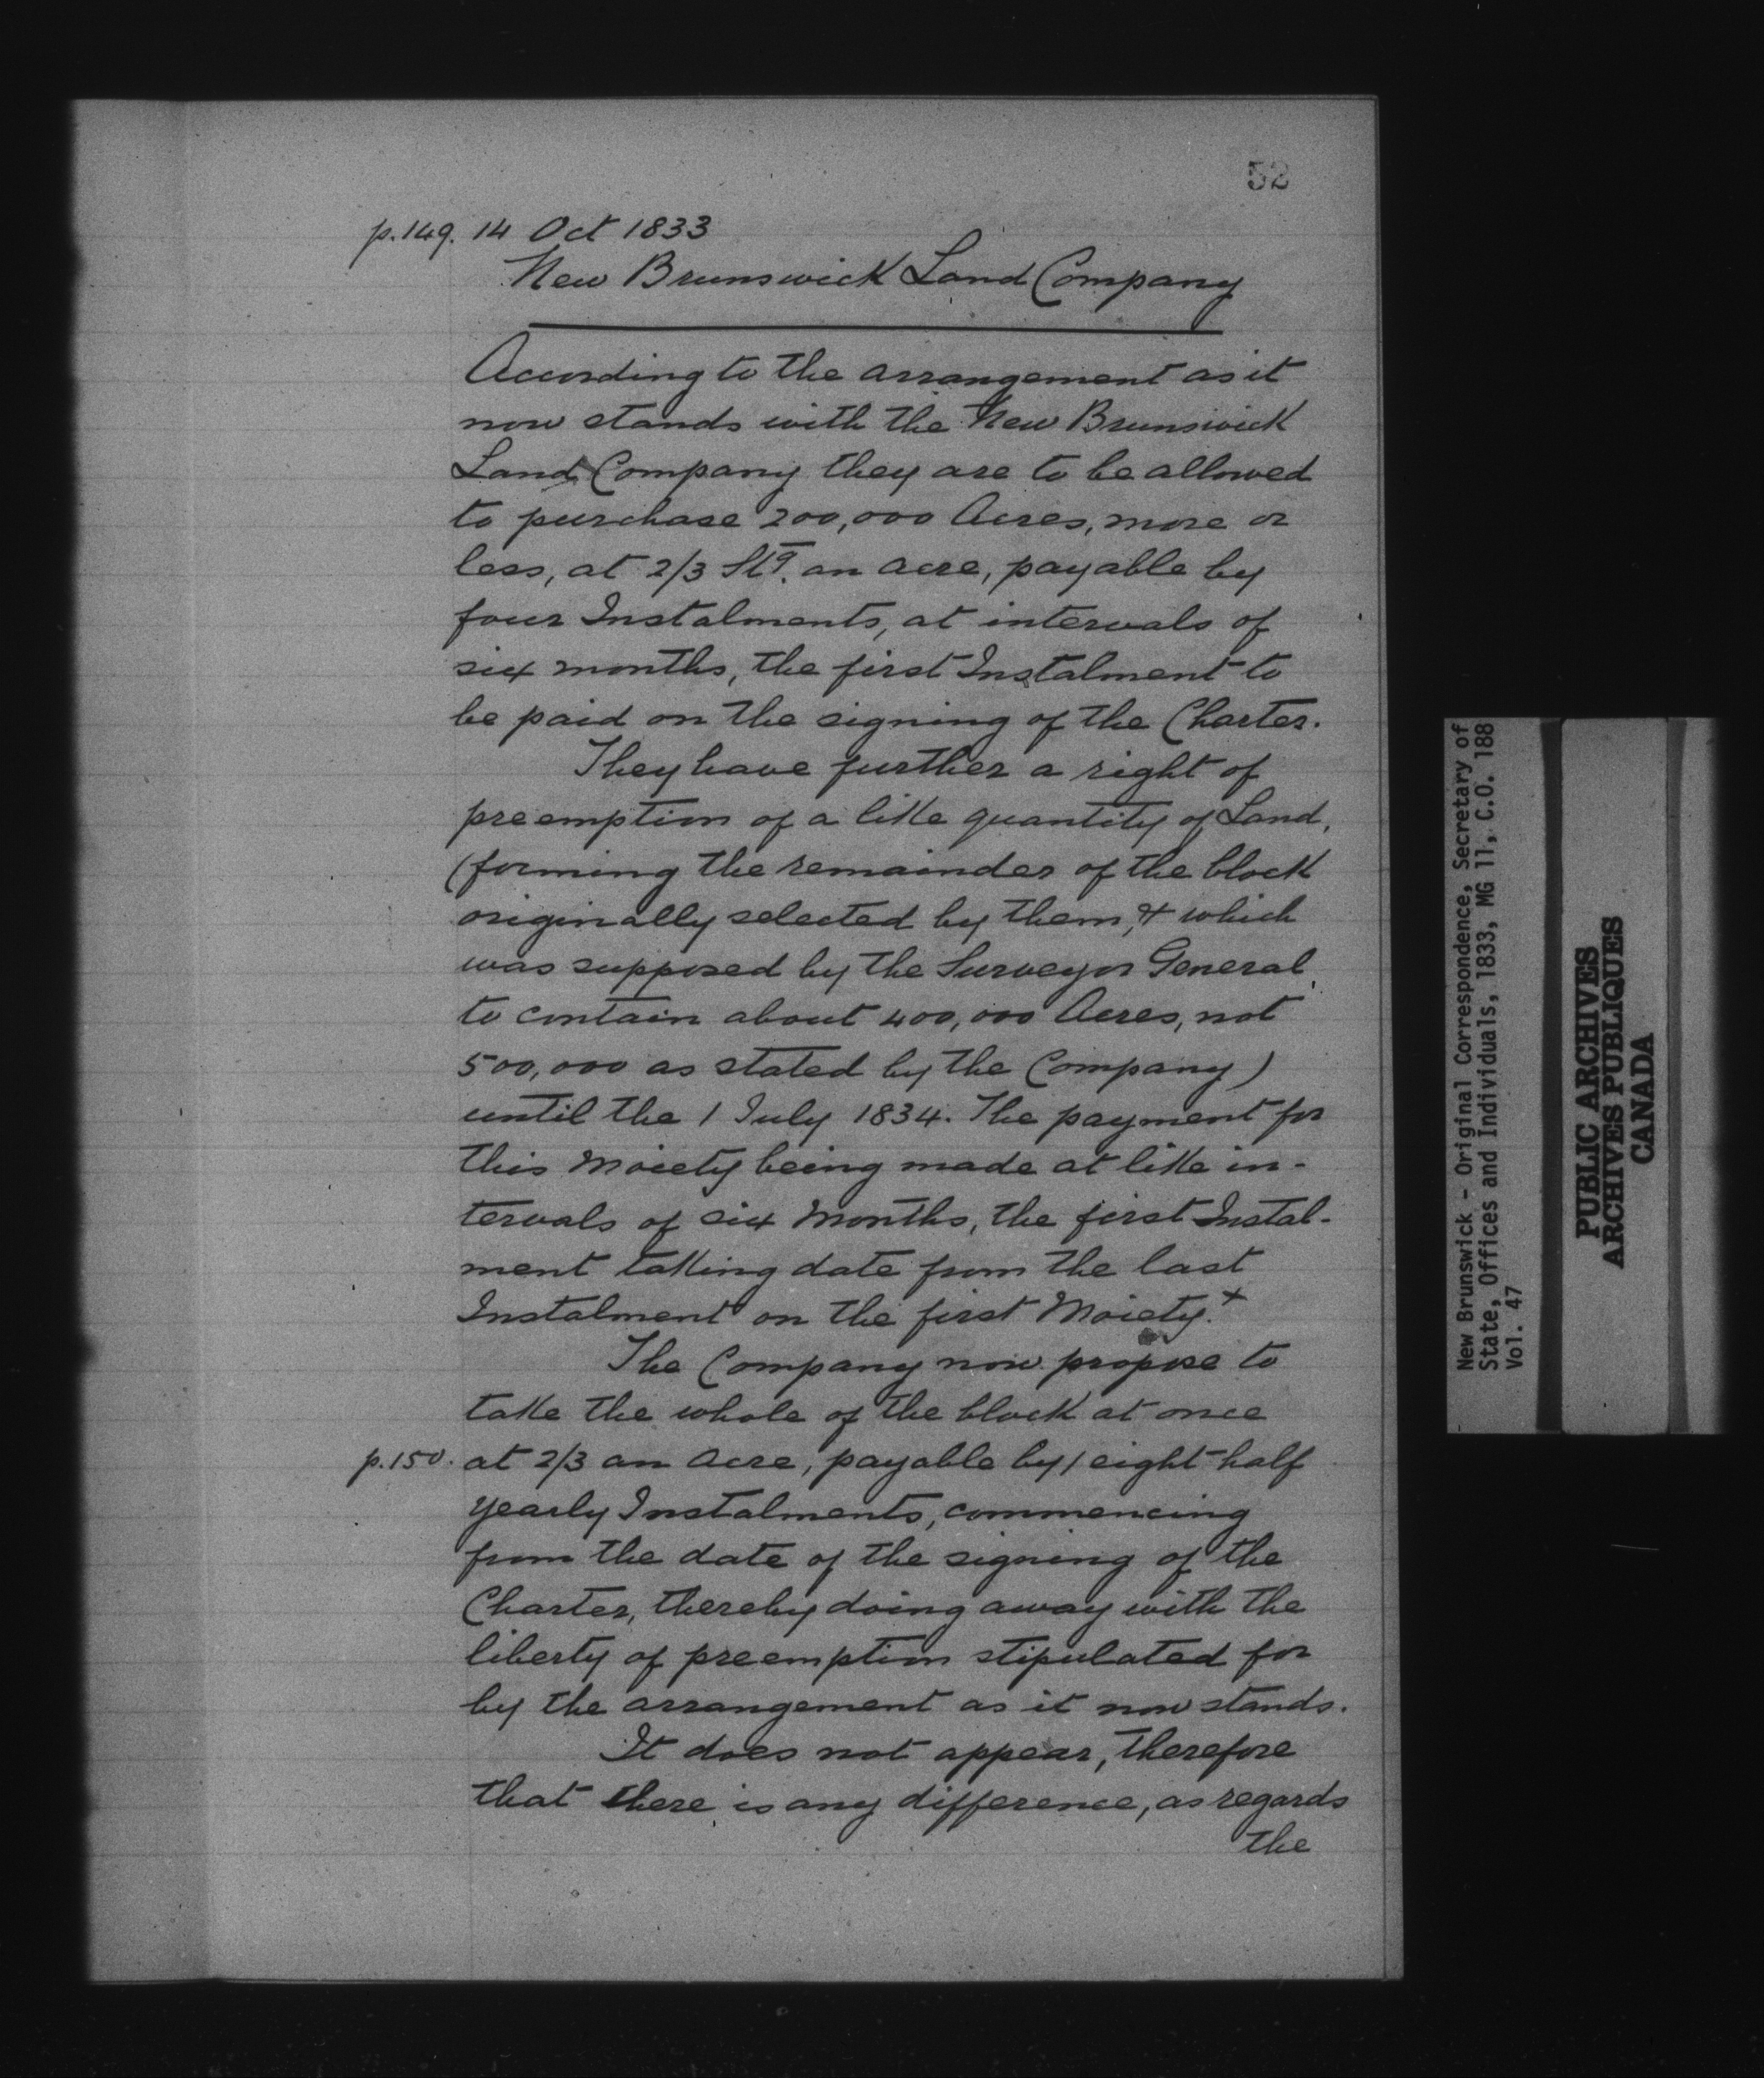 52
p.149. 14 Oct 1833
New Brunswick Land Company
According to the arrangement as it
now stands with the New Brunswick
Land Company they are to be allowed
to purchase 200,000 Acres, more or
less, at 2/3 Stg. an acre, payable by
four Instalments, at intervals of
six months, the first Instalment to
be paid on the signing of the Charter.
They have further a right of
preemption of a like quantity of Land,
(forming the remainder of the block
originally selected by them, & which
was supposed by the Surveyor General
to contain about 400,000 Acres, not
500,000 as stated by the Company)
until the 1 July 1834. The payment for
this Moiety being made at like in-
tervals of six Months, the first Instal-
ment taking date from the last
Instalment on the first Moiety.+
The Company now propose to
take the whole of the block at once
p.150. at 2/3 an Acre, payable by/eight half
yearly Instalments, commencing
from the date of the signing of the
Charter, thereby doing away with the
liberty of preemption stipulated for
by the arrangement as it now stands.
It does not appear, therefore
that there is any difference, as regards
the
New Brunswick - Original Correspondence, Secretary of
State, Offices and Individuals, 1833, MG 11, C.O. 188
Vol. 47
PUBLIC ARCHIVES
ARCHIVES PUBLIQUES
CANADA